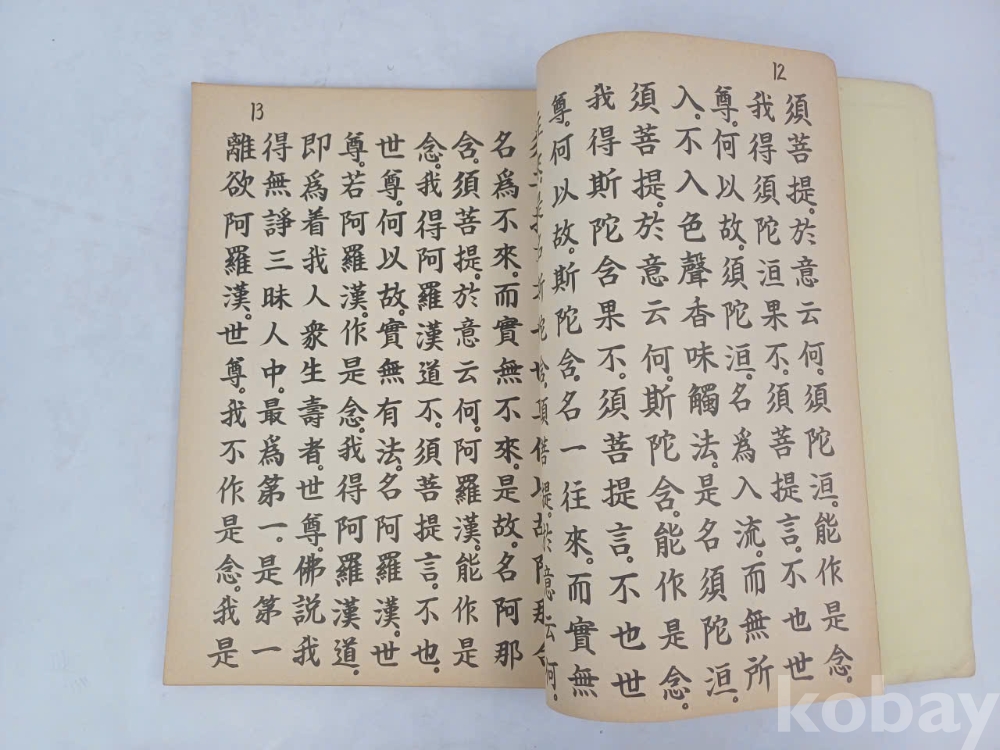 12
須菩提。於意云何。須陀洹。能作是念。
我得須陀洹果不。須菩提言。不也世
尊。何以故。須陀洹。名爲入流。而無所
入。不入色聲香味觸法。是名須陀洹。
須菩提。於意云何。斯陀含。能作是念。
我得斯陀含果不。須菩提言。不也世
尊。何以故。斯陀含。名一往來。而實無
13
名爲不來。而實無不來。是故。名阿那
含。須菩提。於意云何。阿羅漢。能作是
念。我得阿羅漢道不。須菩提言。不也。
世尊。何以故。實無有法。名阿羅漢。世
尊。若阿羅漢。作是念。我得阿羅漢道。
即爲着我人衆生壽者。世尊。佛說我
得無諍三昧人中。最爲第一。是第一
離欲阿羅漢。世尊。我不作是念。我是
kobay